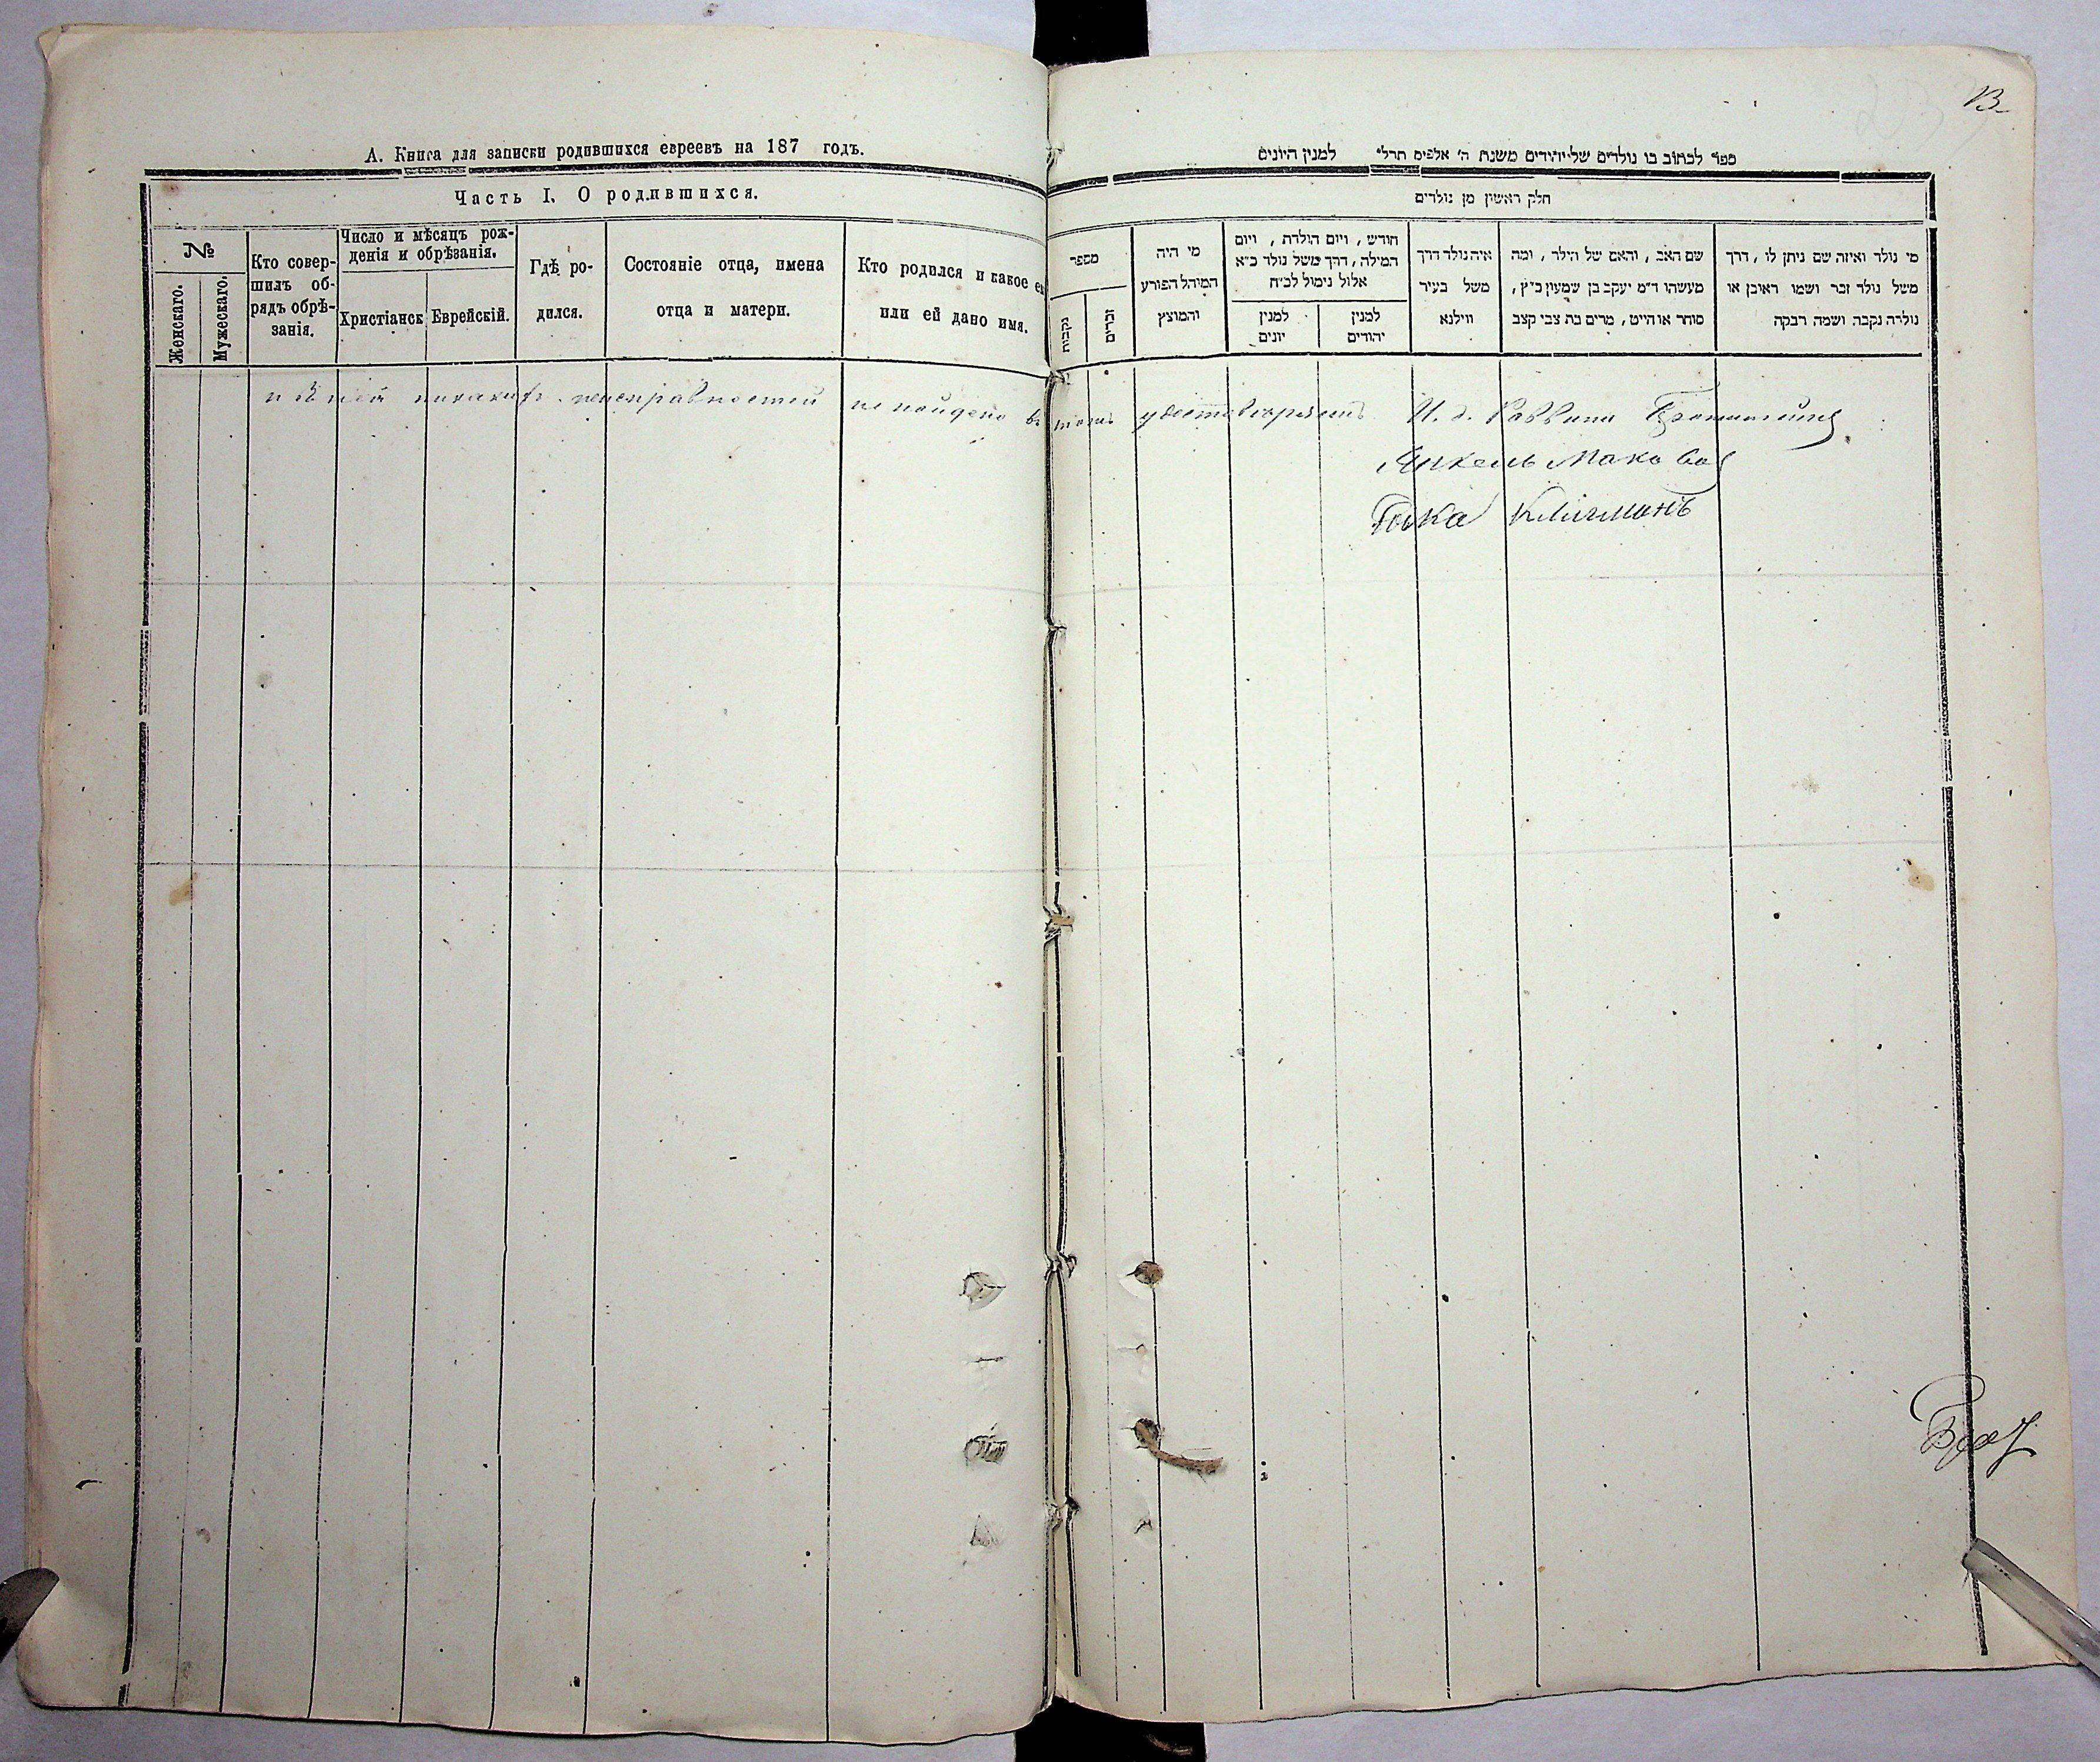 А. Книга для записки родившихся евреевъ на 187 годъ.
Часть I. О родившихся.
№
Женскаго.
Мужескаго.
Кто совер-
шилъ об-
рядъ обрѣ-
занія.
Число и мѣсяцъ рож-
денія и обрѣзанія.
Христіанск
Еврейскій.
Гдѣ ро-
дился.
Состояніе отца, имена
отца и матери.
Кто родился и какое ему
или ей дано имя.
13
ספר לכתוב בו נולדים של־יהודים משנת ה' אלפים תרל" למנין היונים
חלק ראשון מן נולדים
מספר
נקבות
זכרים
מי היה
המוהל הפורע
והמוצץ
חודש, ויום הולדת, ויום
המילה, דרך משל נולד כ״א
אלול נימול לכ״ח
למנין
יונים
למנין
יהודים
איה נולד דרך
משל בעיר
ווילנא
שם האב, והאם של הילד, ומה
מעשהו ד״מ יעקב בן שמעון כ״ץ,
סוחר או חייט, מרים בת צבי קצב
מי נולד ואיזה שם ניתן לו, דרך
משל נולד זכר ושמו ראובן או
נולדה נקבה ושמה רבקה
и въ ней никакихъ неисправностей не найдено въ томъ удостовѣряемъ И. д. Раввина
Янкель